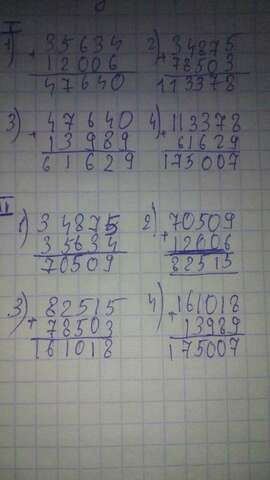 I
1) + 35634 2) + 34875
12006 78503
47640 113378
3) + 47640 4) + 113378
13989 61629
61629 175007
II
1) 34875 2) 70509
35634 + 12006
70509 82515
3) + 82515 4) + 161018
78503 13989
161018 175007